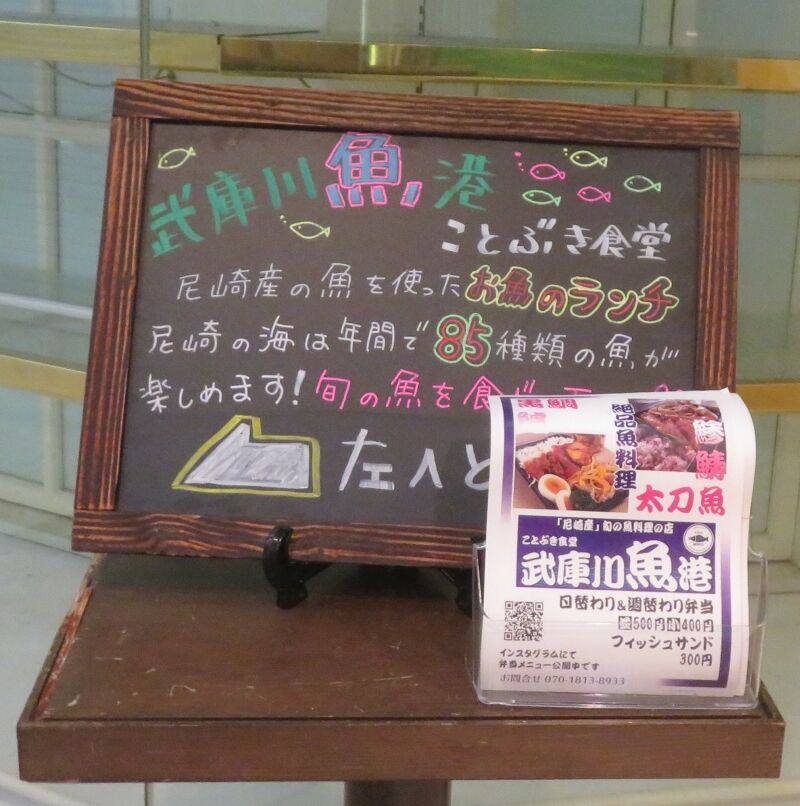 武庫川魚港
ことぶき食堂
尼崎産の魚を使ったお魚のランチ
尼崎の海は年間で85種類の魚が
楽しめます！旬の魚を食べ
左へと
黒鯛
絶品魚料理
鯵
鯖
太刀魚
「尼崎産」旬の魚料理の店
ことぶき食堂
武庫川魚港
日替わり&週替わり弁当
500円 400円
フィッシュサンド
300円
インスタグラムにて
弁当メニュー公開中です
お問合せ 070-1813-8933